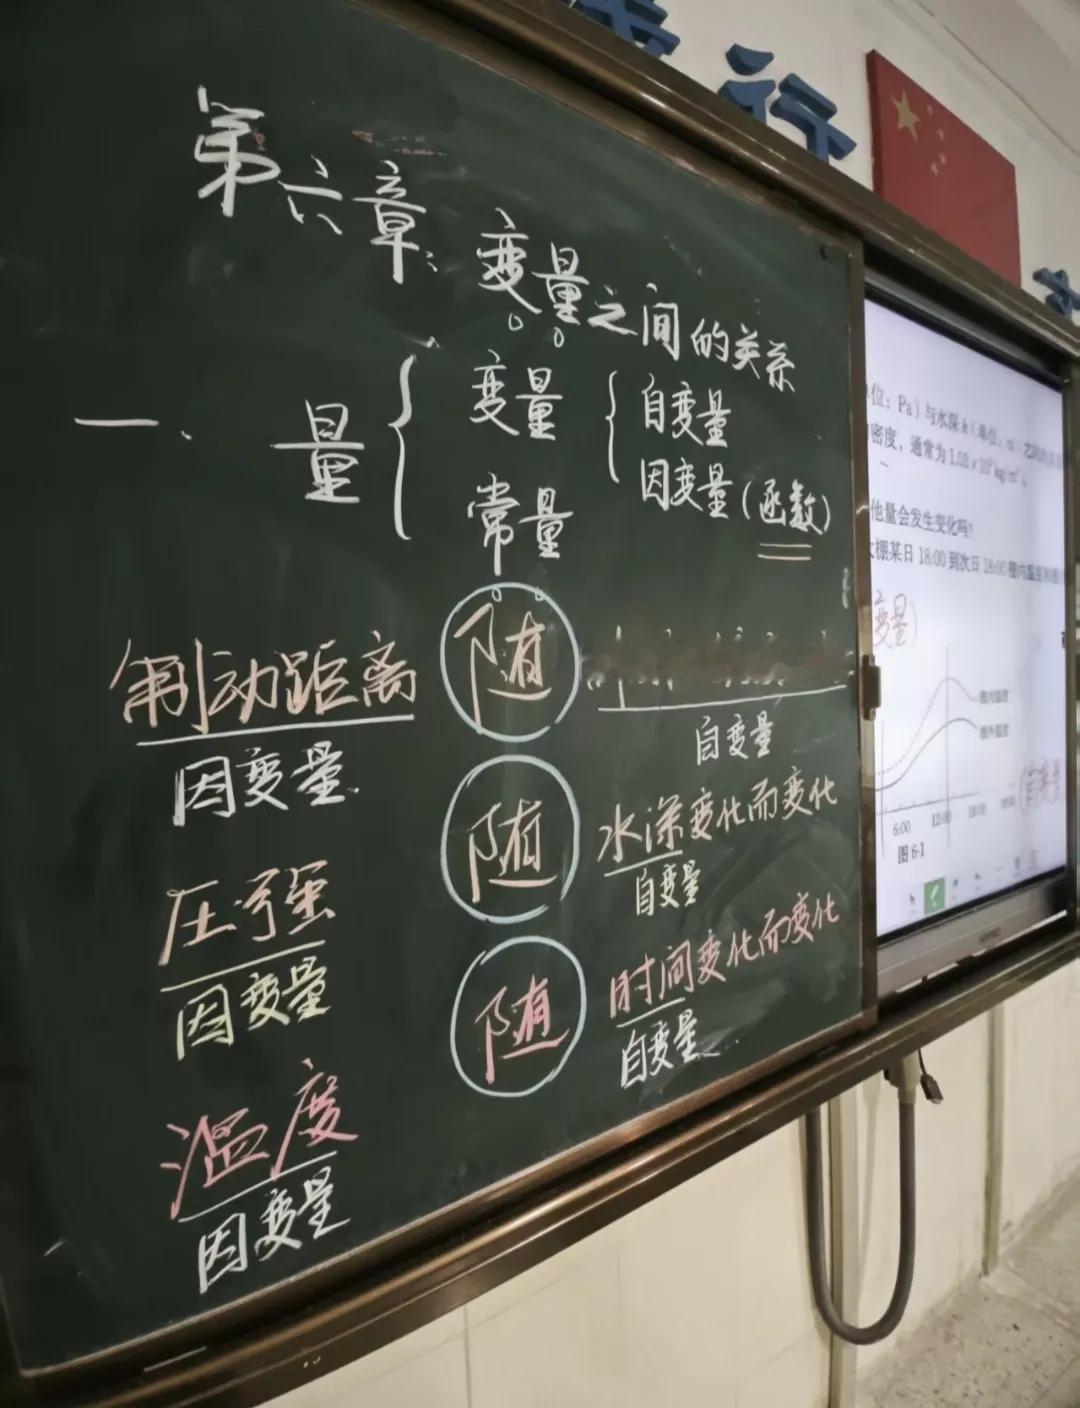 行
第六章: 变量之间的关系
一、量 { 变量 { 自变量
因变量(函数)
常量
制动距离 随
因变量 自变量
压强 随 水深变化而变化
因变量 自变量
温度 随 时间变化而变化
因变量 自变量
位: Pa) 与水深h(单位: m)之间的
密度, 通常为1.03×10³kg/m³
他量会发生变化吗?
棚某日18:00到次日18:00棚内温度
变量)
棚内温度
棚外温度
6:00 12:00 18:00 时间
(自变量
图6-1